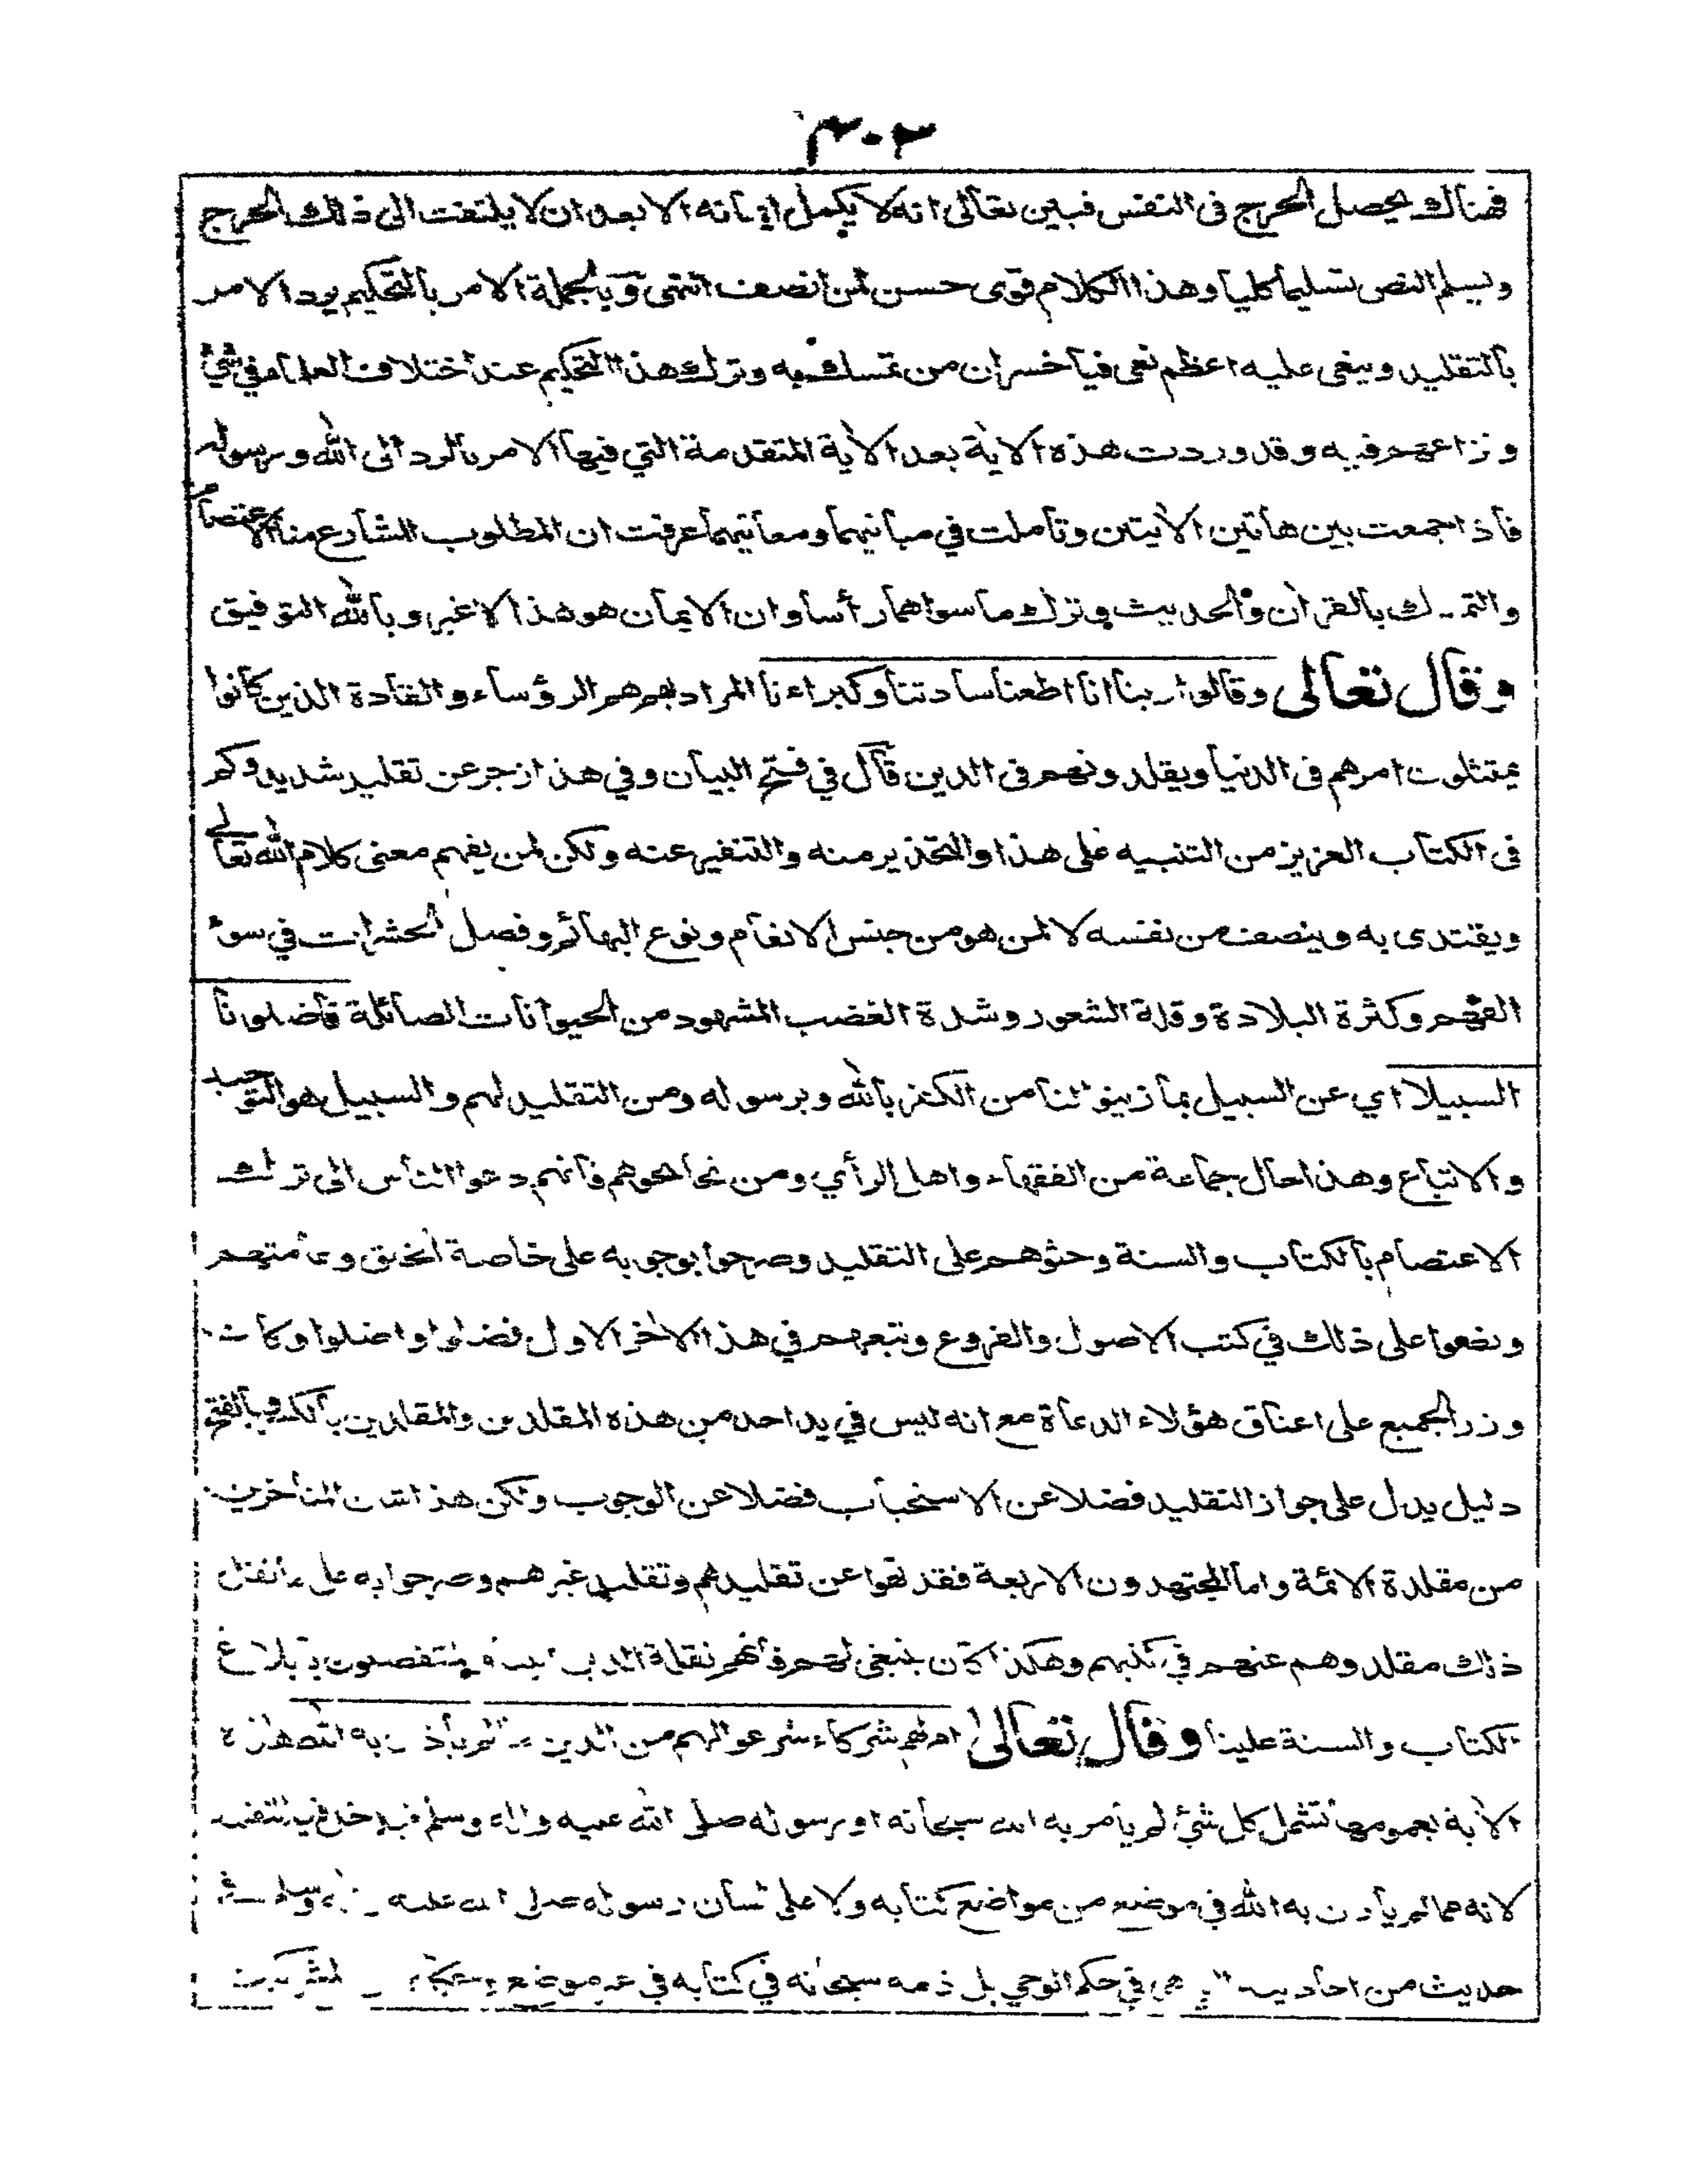 ٣٠٣
فهناك يحصل الحرج فى النفس فبين تعالى انه لا يكمل ايمانه الا بعد ان لا يلتفت الى ذلك الحرج
ويسلم النص تسليما كليا وهذا الكلام قوى حسن لمن انصف انتهى وبالجملة الامر بالتحكيم يرد الامر
بالتقليد وينعى عليه اعظم نعى فيا خسران من تمسك به وترك هذا التحكيم عند اختلاف العلماء في شئ
ونزاعهم فيه وقد وردت هذه الاية بعد الاية المتقدمة التي فيها الامر بالرد الى الله ورسوله
فاذا جمعت بين هاتين الايتين وتاملت في مبانيهما ومعانيهما عرفت ان المطلوب الشارع منا الاعتصام
والتمسك بالقران والحديث وترك ما سواهما رأسا وان الايمان هو هذا لا غير وبالله التوفيق
وقال تعالى وقالوا ربنا انا اطعنا سادتنا وكبراءنا المراد بهم هم الرؤساء والقادة الذين كانوا
يمتثلون امرهم فى الدنيا ويقلدونهم فى الدين قال في فتح البيان وفي هذا زجر عن تقليد شديد وكم
فى الكتاب العزيز من التنبيه على هذا والتحذير منه والتنفير عنه ولكن لمن يفهم معنى كلام الله تعالى
ويقتدى به وينصف من نفسه لا لمن هو من جنس الانعام ونوع البهائم وفصل الحشرات في سوء
الفهم وكثرة البلادة وقلة الشعور وشدة الغضب المشهود من الحيوانات الصائلة فاضلونا
السبيلا اي عن السبيل بما زينوا لنا من الكفر بالله وبرسوله ومن التقليد لهم والسبيل هو التوحيد
والاتباع وهذا حال جماعة من الفقهاء واهل الرأي ومن نحا نحوهم فانهم دعوا الناس الى ترك
الاعتصام بالكتاب والسنة وحثوهم على التقليد وصرحوا بوجوبه على خاصة الخلق وعامتهم
ونصوا على ذلك في كتب الاصول والفروع وتبعهم في هذا الاخر الاول فضلوا واضلوا وكان
وزر الجميع على اعناق هؤلاء الدعاة مع انه ليس في يد احد من هذه المقلدين والمقلدين بالكسر وبالفتح
دليل يدل على جواز التقليد فضلا عن الاستحباب فضلا عن الوجوب ولكن هذا المتاخرين
من مقلدة الائمة واما المجتهدون الاربعة فقد نهوا عن تقليدهم وتقليد غيرهم وصرحوا به على ما نقل
ذلك مقلدوهم عنهم في كتبهم وهكذا كان ينبغي لهم فانهم نقلة الدين الينا بابلاغ
الكتاب والسنة علينا وقال تعالى ام لهم شركاء شرعوا لهم من الدين ما لم يأذن به الله هذه
الاية بعمومها تشمل كل شئ لم يأمر به الله سبحانه او رسوله صلى الله عليه واله وسلم فيدخل فيه التقليد
لانه مما لم يأذن به الله في موضع من مواضع كتابه ولا على لسان رسوله صلى الله عليه واله وسلم في
حديث من احاديثه هي في حكم الوحي بل ذمه سبحانه في كتابه في غير موضع المشركين